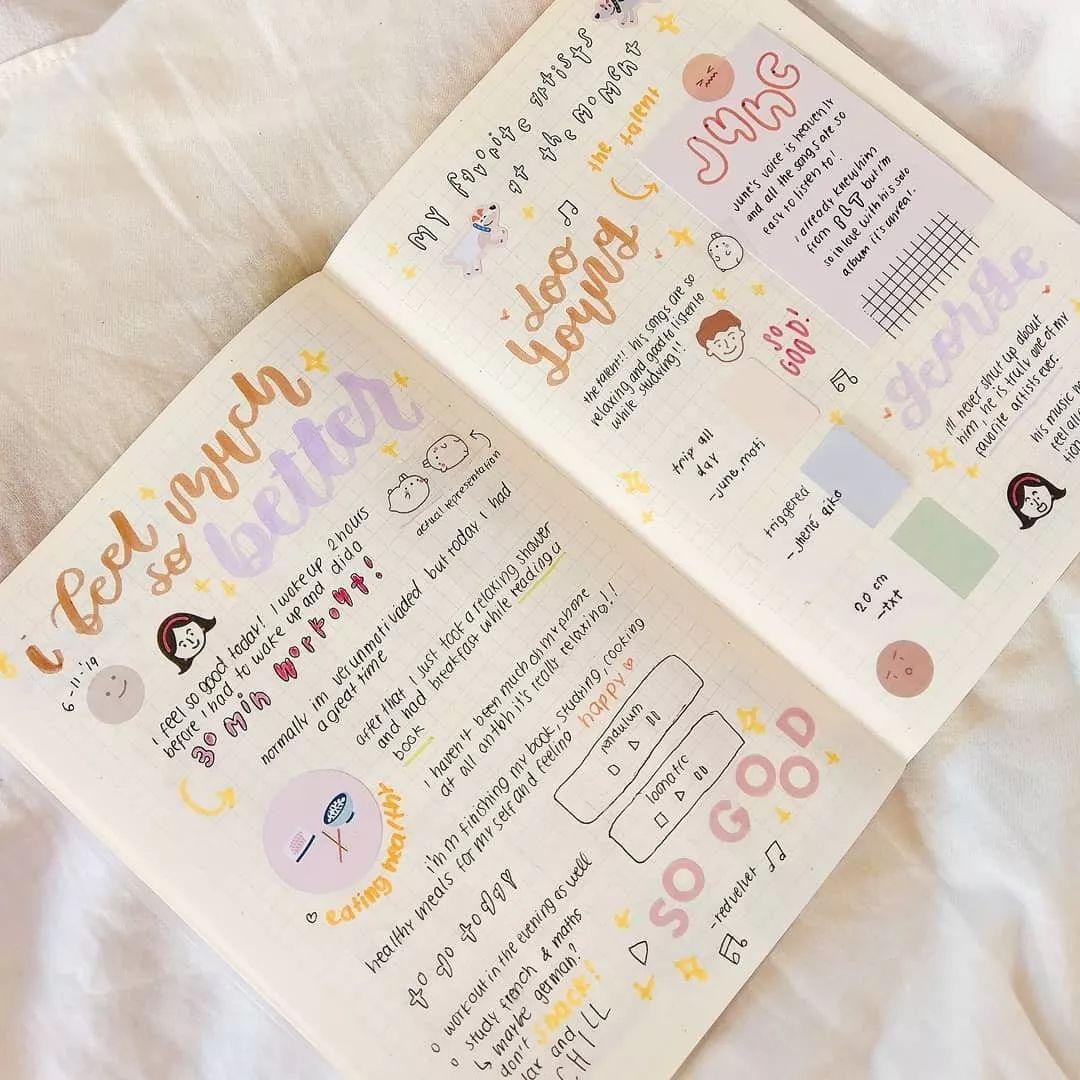 i feel much
so better
6-11-'19
actual representation
i feel so good today! I woke up 2 hours
before i had to wake up and did a
30 min workout!
normally i'm very unmotivaded but today I had
a great time
after that I just took a relaxing shower
and had breakfast while reading a
book
eating healthy
I haven't been much on my phone
at all an tbh it's really relaxing!!
i'm finishing my book, studying, cooking
healthy meals for my self and feeling happy
to do
workout in the evening as well
study french & maths
↳ maybe german?
don't snack!
lax and
CHILL
pendulum
SO GOOD
-red velvet
my favorite artists
at the moment
the talent
doo
young
the talent!! his songs are so
relaxing and good to listen to
while studying!!
SO
GOOD!
JUNE
june's voice is heavenly
and all the songs are so
easy to listen to!
i already knew him
from but i'm
so in love with his solo
album it's unreal.
george
I'll never shut up about
him, he is truly one of my
favorite artists ever.
his music m
feel all
tion
trip all
day
-june, moti
triggered
-jhené aiko
20 cm
-txt